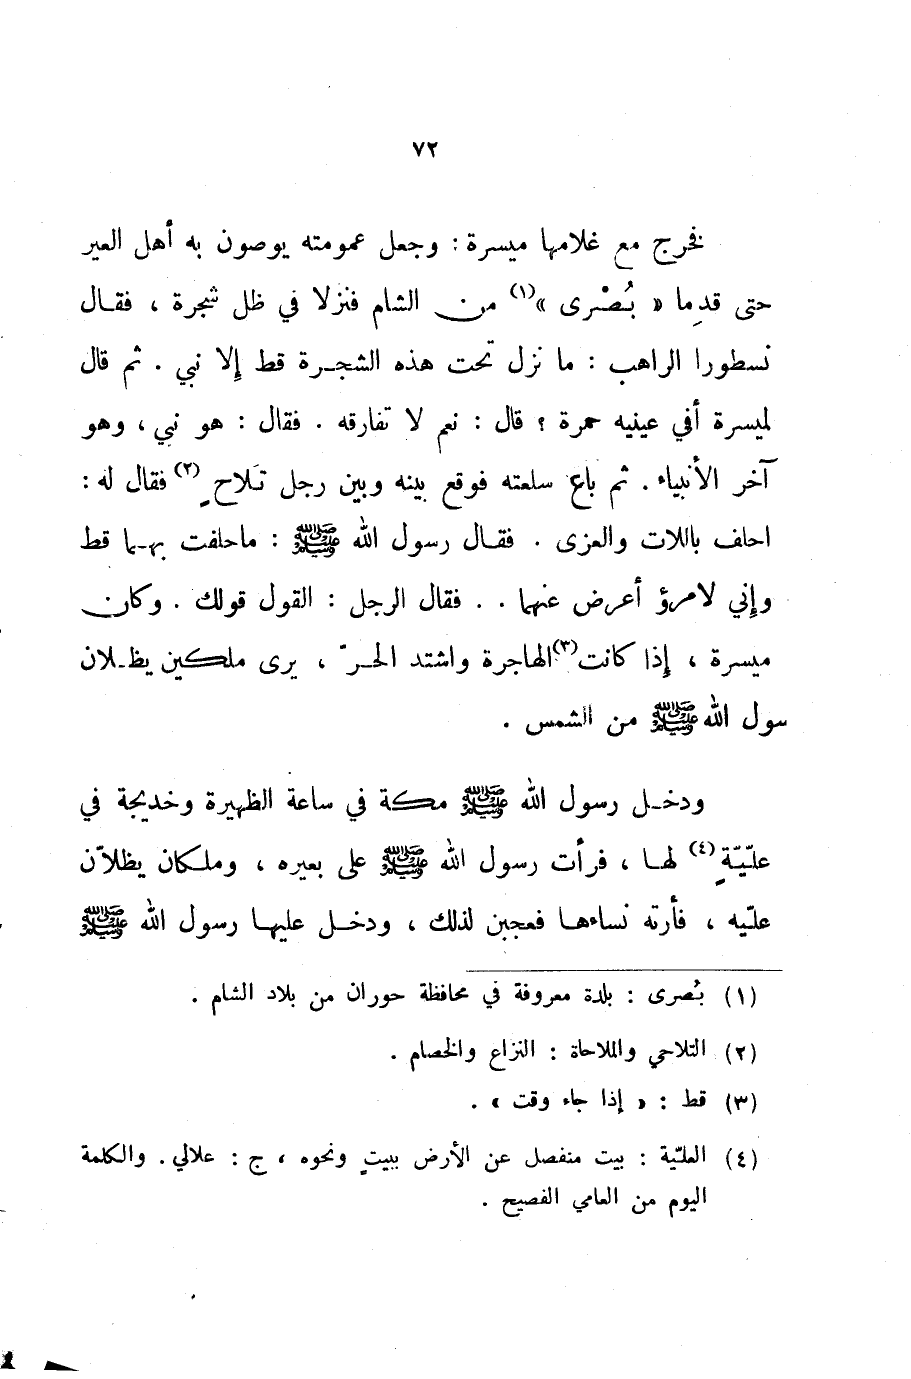 ٧٢
فخرج مع غلامها ميسرة : وجعل عمومته يوصون به أهل العير
حتى قدِما « بُصْرى »(١) من الشام فنزلا في ظل شجرة ، فقال
نسطورا الراهب : ما نزل تحت هذه الشجرة قط إلا نبي . ثم قال
لميسرة أفي عينيه حمرة ؟ قال : نعم لا تفارقه . فقال : هو نبي ، وهو
آخر الأنبياء . ثم باع سلعته فوقع بينه وبين رجل تَلاحٍ(٢) فقال له :
احلف باللات والعزى . فقال رسول الله ﷺ : ماحلفت بهما قط
وإني لامرؤ أعرض عنهما . . فقال الرجل : القول قولك . وكان
ميسرة ، إذا كانت(٣) الهاجرة واشتد الحرّ ، يرى ملكين يظلان
سول الله ﷺ من الشمس .
ودخل رسول الله ﷺ مكة في ساعة الظهيرة وخديجة في
علّيّةٍ(٤) لها ، فرأت رسول الله ﷺ على بعيره ، وملكان يظلاّن
عليه ، فأرته نساءها فعجبن لذلك ، ودخل عليها رسول الله ﷺ
(١) بُصرى : بلدة معروفة في محافظة حوران من بلاد الشام .
(٢) التلاحي والملاحاة : النزاع والخصام .
(٣) قط : « إذا جاء وقت » .
(٤) العلّية : بيت منفصل عن الأرض ببيتٍ ونحوه ، ج : علالي . والكلمة
اليوم من العامي الفصيح .